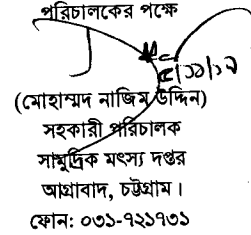 পরিচালকের পক্ষে
(মোহাম্মদ নাজিম উদ্দিন)
সহকারী পরিচালক
সামুদ্রিক মৎস্য দপ্তর
আগ্রাবাদ, চট্টগ্রাম।
ফোন: ০৩১-৭২১৭৩১